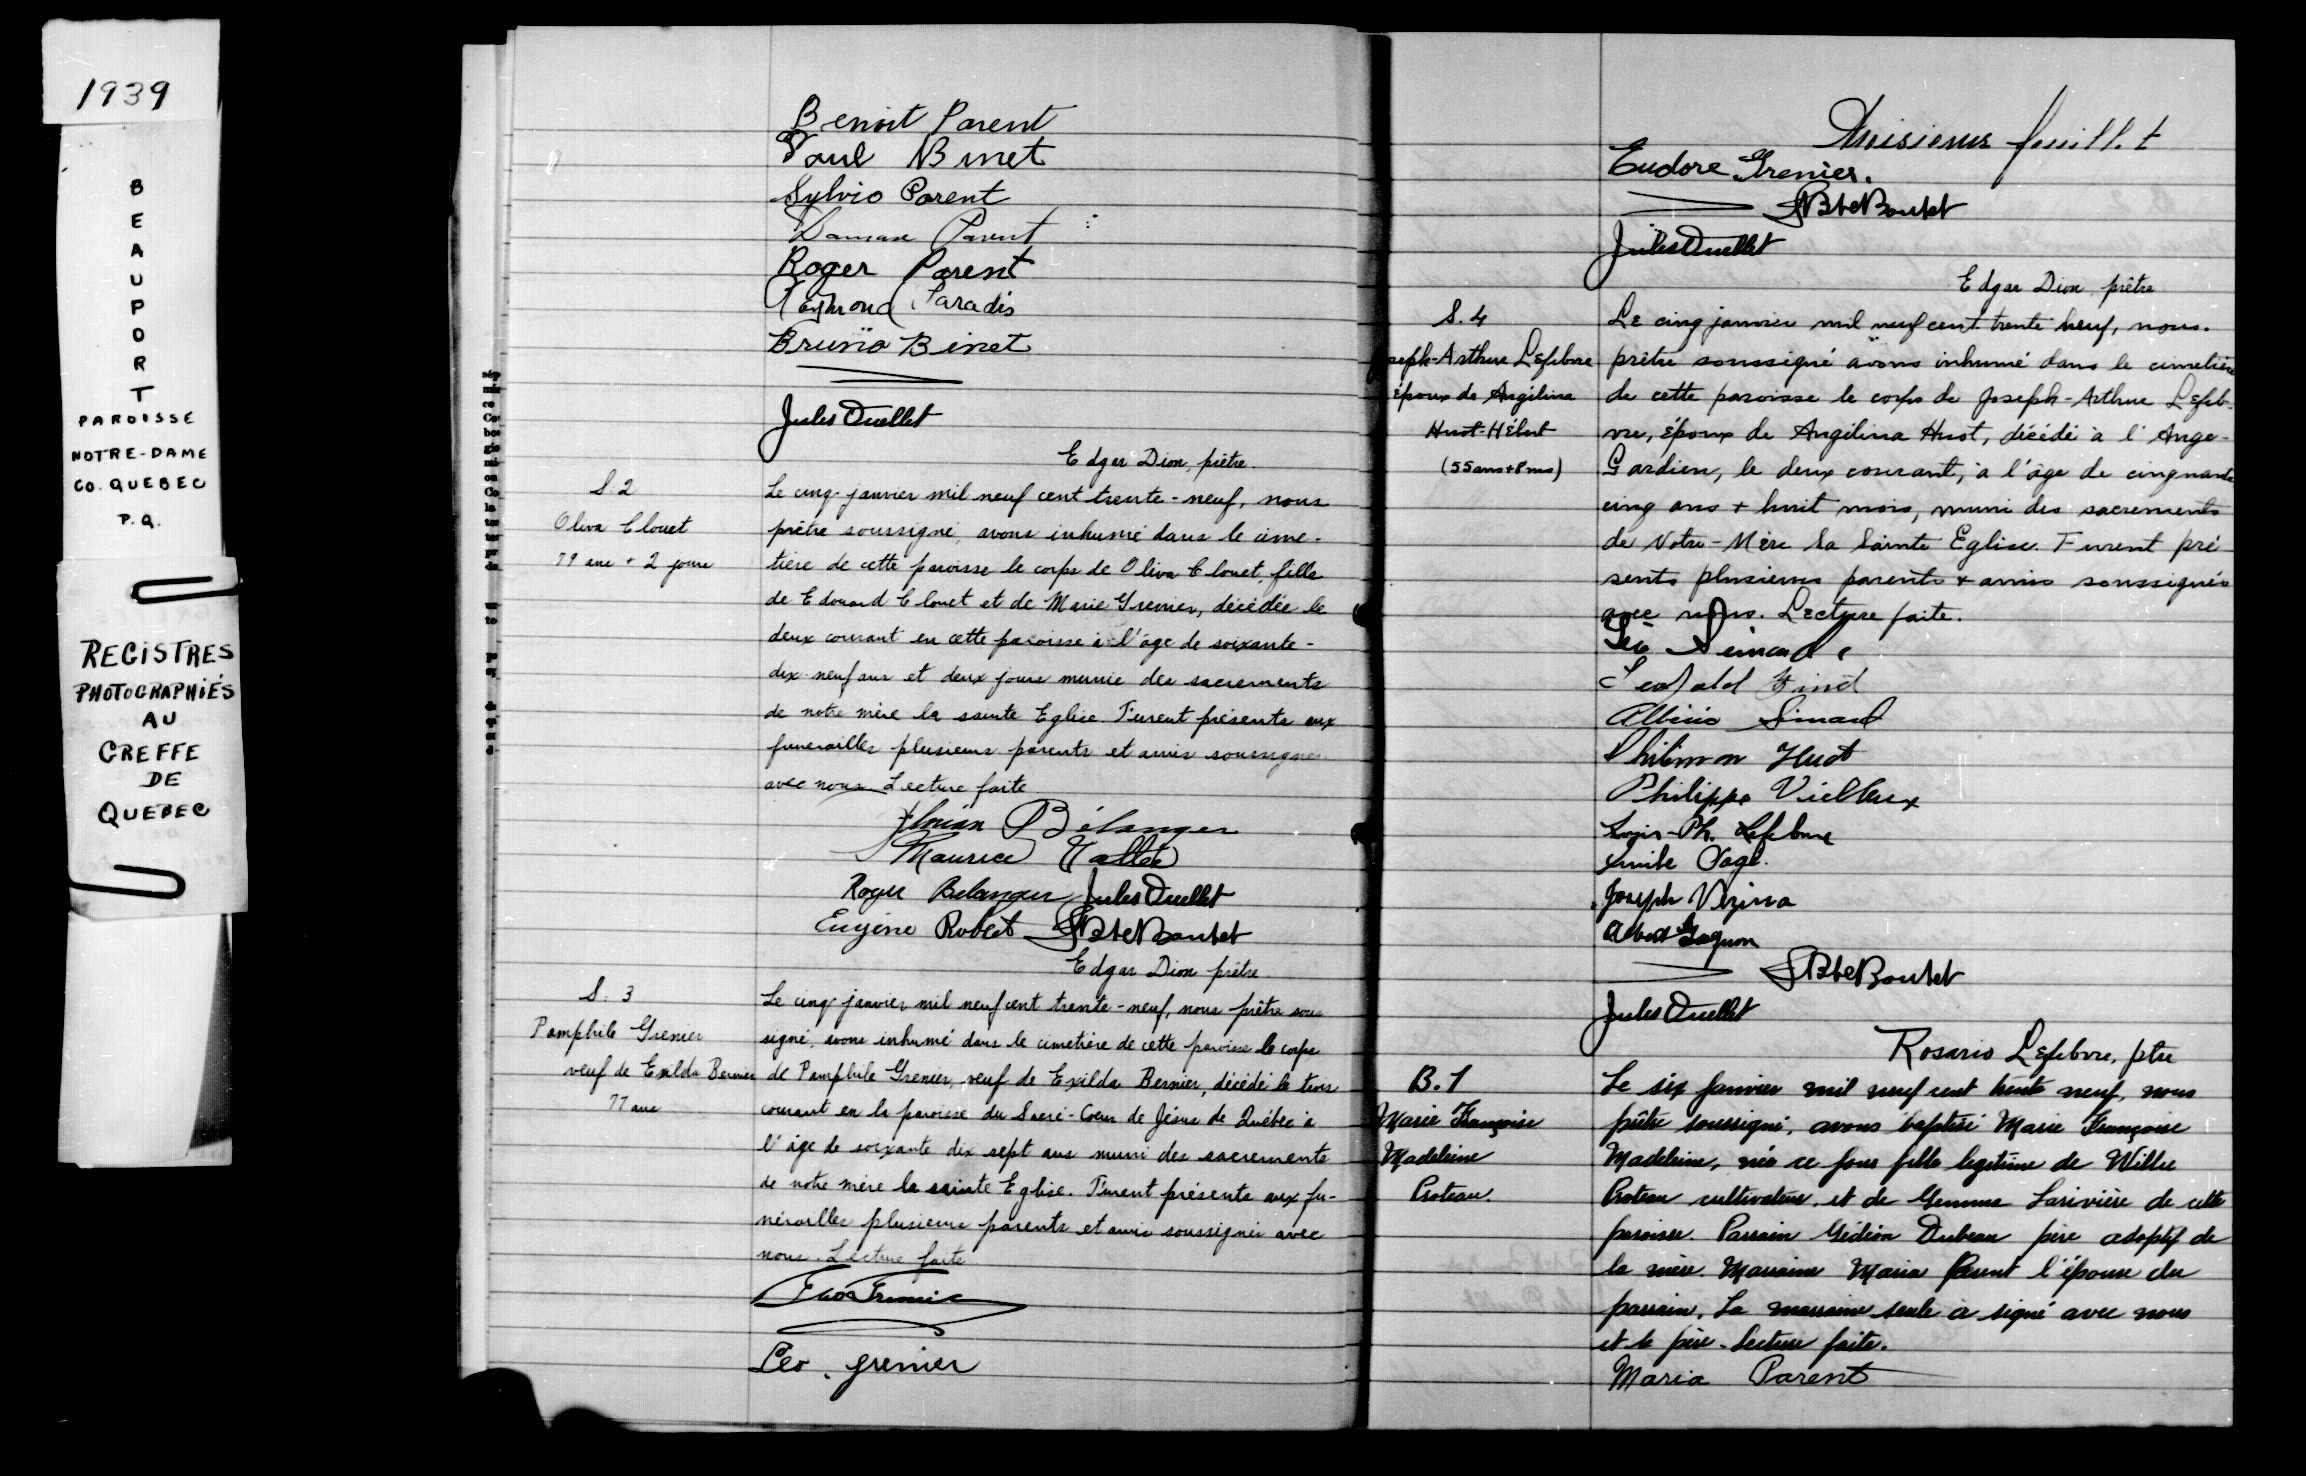 1939
BEAUPORT
PAROISSE
NOTRE-DAME
CO. QUEBEC
P.Q.
REGISTRES
PHOTOGRAPHIÉS
AU
GREFFE
DE
QUEBEC
Benoit Parent
Paul Binet
Sylvio Parent
Damase Parent
Roger Parent
Raymond Paradis
Bruno Binet
Jules Ouellet
Edgar Dion, prêtre.
S. 2
Oliva Clouet
79 ans + 2 jours
Le cinq janvier mil neuf cent trente-neuf, nous
prêtre soussigné, avons inhumé dans le cime-
tière de cette paroisse le corps de Oliva Clouet, fille
de Edouard Clouet et de Marie Grenier, décédée le
deux courant en cette paroisse à l'âge de soixante-
dix-neuf ans et deux jours munie des sacrements
de notre mère la sainte Eglise. Furent présents aux
funérailles plusieurs parents et amis soussignés
avec nous. Lecture faite
Bélanger
Maurice Vallée
Roger Belanger Jules Ouellet
Eugène Robert JBteBoutet
Edgar Dion prêtre
S. 3
Pamphile Grenier
veuf de Exilda Bernier
77 ans
Le cinq janvier mil neuf cent trente-neuf, nous prêtre sous
signé, avons inhumé dans le cimetière de cette paroisse le corps
de Pamphile Grenier, veuf de Exilda Bernier, décédé le trois
courant en la paroisse du Sacré-Coeur de Jésus de Québec à
l'âge de soixante dix sept ans muni des sacrements
de notre mère la sainte Eglise. Furent présents aux fu-
nérailles plusieurs parents et amis soussignés avec
nous. Lecture faite
Leo. grenier
Troisieme feuillet
Eudore Grenier.
JBteBoutet
Jules Ouellet
Edgar Dion, prêtre
S. 4
seph-Arthur Lefebvre
époux de Angélina
Huot-Hébert
(55 ans + 8 ms)
Le cinq janvier mil neuf cent trente neuf, nous.
prêtre soussigné avons inhumé dans le cimetière
de cette paroisse le corps de Joseph-Arthur Lefeb-
vre, époux de Angélina Huot, décédé à l'Ange-
Gardien, le deux courant, à l'âge de cinquante
cinq ans + huit mois, muni des sacrements
de Notre-Mère la Sainte Eglise. Furent pré
sents plusieurs parents + amis soussignés
avec nous. Lecture faite.
Léo Simard
Albinio Simard
Philimon Huot
Philippe Vieilleux
Louis-Ph. Lefebvre
Emile Pagé.
Joseph Vézina
Albert Gagnon
JBteBoutet
Jules Ouellet
Rosario Lefebvre, ptre
B. 1
Marie Françoise
Madeleine
Proteau.
Le six janvier mil neuf cent trente neuf, nous
prêtre soussigné, avons baptisé Marie Françoise
Madeleine, née ce jour fille légitime de Willie
Proteau cultivateur, et de Gemma Larivière de cette
paroisse. Parrain Gédéon Dubeau père adoptif de
la mère. Marraine Maria Parent l'épouse du
parrain. La marraine seule a signé avec nous
et le père. Lecture faite.
Maria Parent